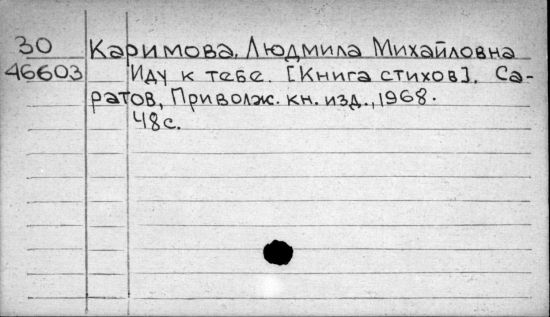 30 Каримова, Людмила Михайловна
46603 Иду к тебе. [Книга стихов]. Са-
ратов, Приволж. кн. изд., 1968.
48 с.